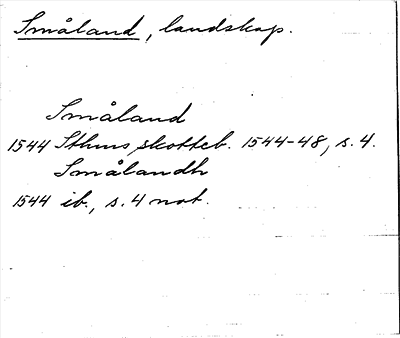 Småland, landskap.
Småland
1544 Sthms skotteb. 1544-48, s. 4.
Smålandh
1544 ib., s. 4 not.